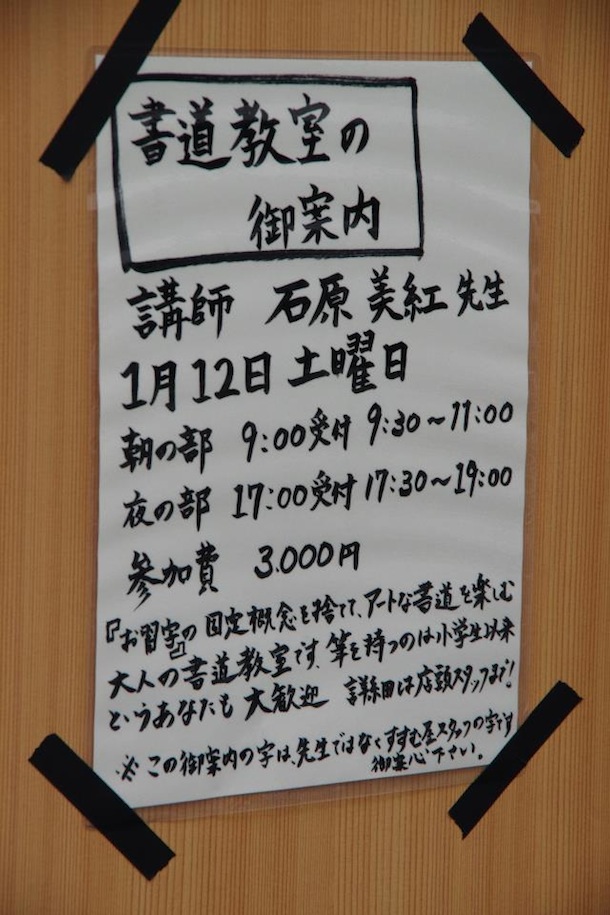 書道教室の
御案内
講師 石原 美紅 先生
1月12日 土曜日
朝の部 9:00受付 9:30〜11:00
夜の部 17:00受付 17:30〜19:00
参加費 3.000円
『お習字』の固定概念を捨て、アートな書道を楽しむ
大人の書道教室です。筆を持つのは小学生以来
というあなたも 大歓迎 詳細は店頭スタッフまで!
※この御案内の字は、先生ではなくすすむ屋スタッフの字です
御安心下さい。